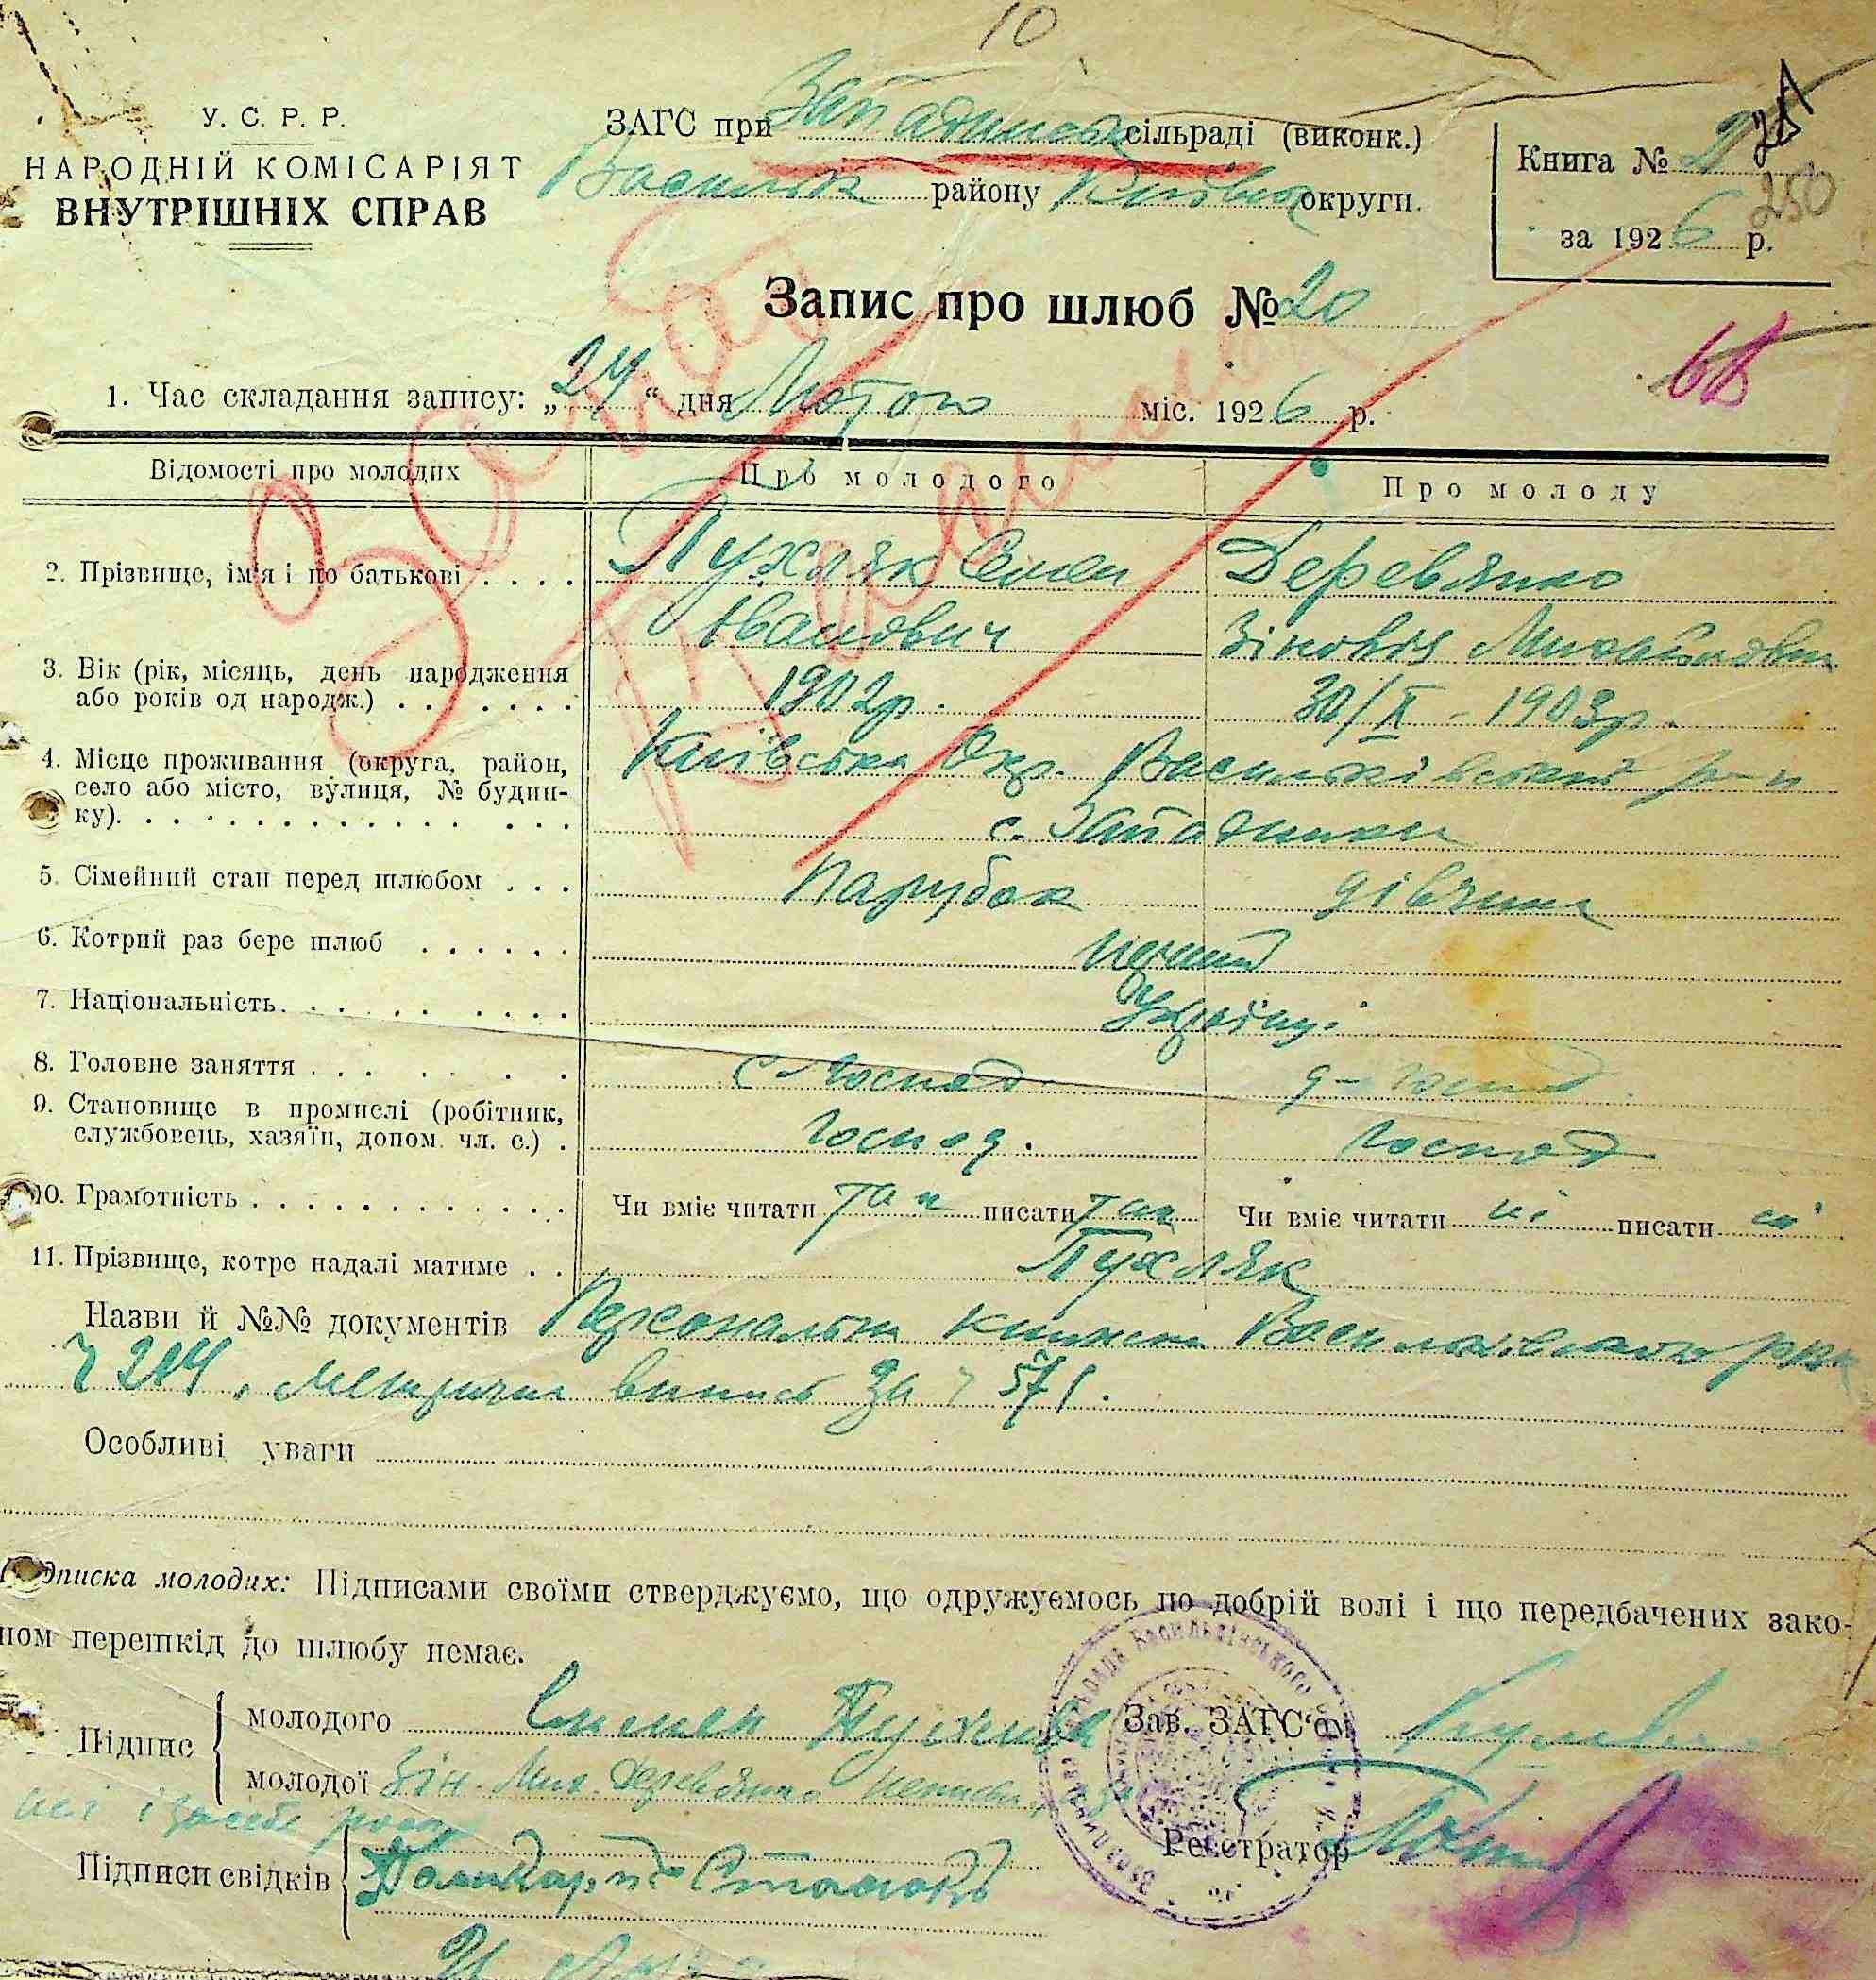 10
У. С. Р. Р.
НАРОДНІЙ КОМІСАРІЯТ
ВНУТРІШНІХ СПРАВ
ЗАГС при Западинськ сільраді (виконк.)
Васильк району Київськ округи.
Книга № 2
250
за 1926 р.
Запис про шлюб № 20
1. Час складання запису: „24“ дня Лютого міс. 1926 р.
Відомості про молодих
Про молодого
Про молоду
2. Прізвище, ім'я і по батькові
Пухляк Семен
Іванович
Деревянко
Зіновія Михайловн
3. Вік (рік, місяць, день народження
або років од народж.)
1902р.
30/X - 1903р.
4. Місце проживання (округа, район,
село або місто, вулиця, № будин-
ку).
Київська Окр. Васильківський р-н
с. Западинка
5. Сімейний стан перед шлюбом
Парубок
дівчина
6. Котрий раз бере шлюб
перший
7. Національність.
Українці
8. Головне заняття
с-господ.
д-госпед.
9. Становище в промислі (робітник,
службовець, хазяїн, допом. чл. с.)
господ.
господ
10. Грамотність
Чи вміє читати так писати так
Чи вміє читати ні писати ні
11. Прізвище, котре надалі матиме
Пухляк
Назви й №№ документів Персональна книжка Васильківського
204, Метрична випись за 571.
Особливі уваги
Підписка молодих: Підписами своїми стверджуємо, що одружуємось по добрій волі і що передбачених зако-
ном перешкід до шлюбу немає.
Підпис
молодого Симен Пухляк
молодої Зін. Мих. Деревянко
Зав. ЗАГС'ом
Реєстратор
Підписи свідків